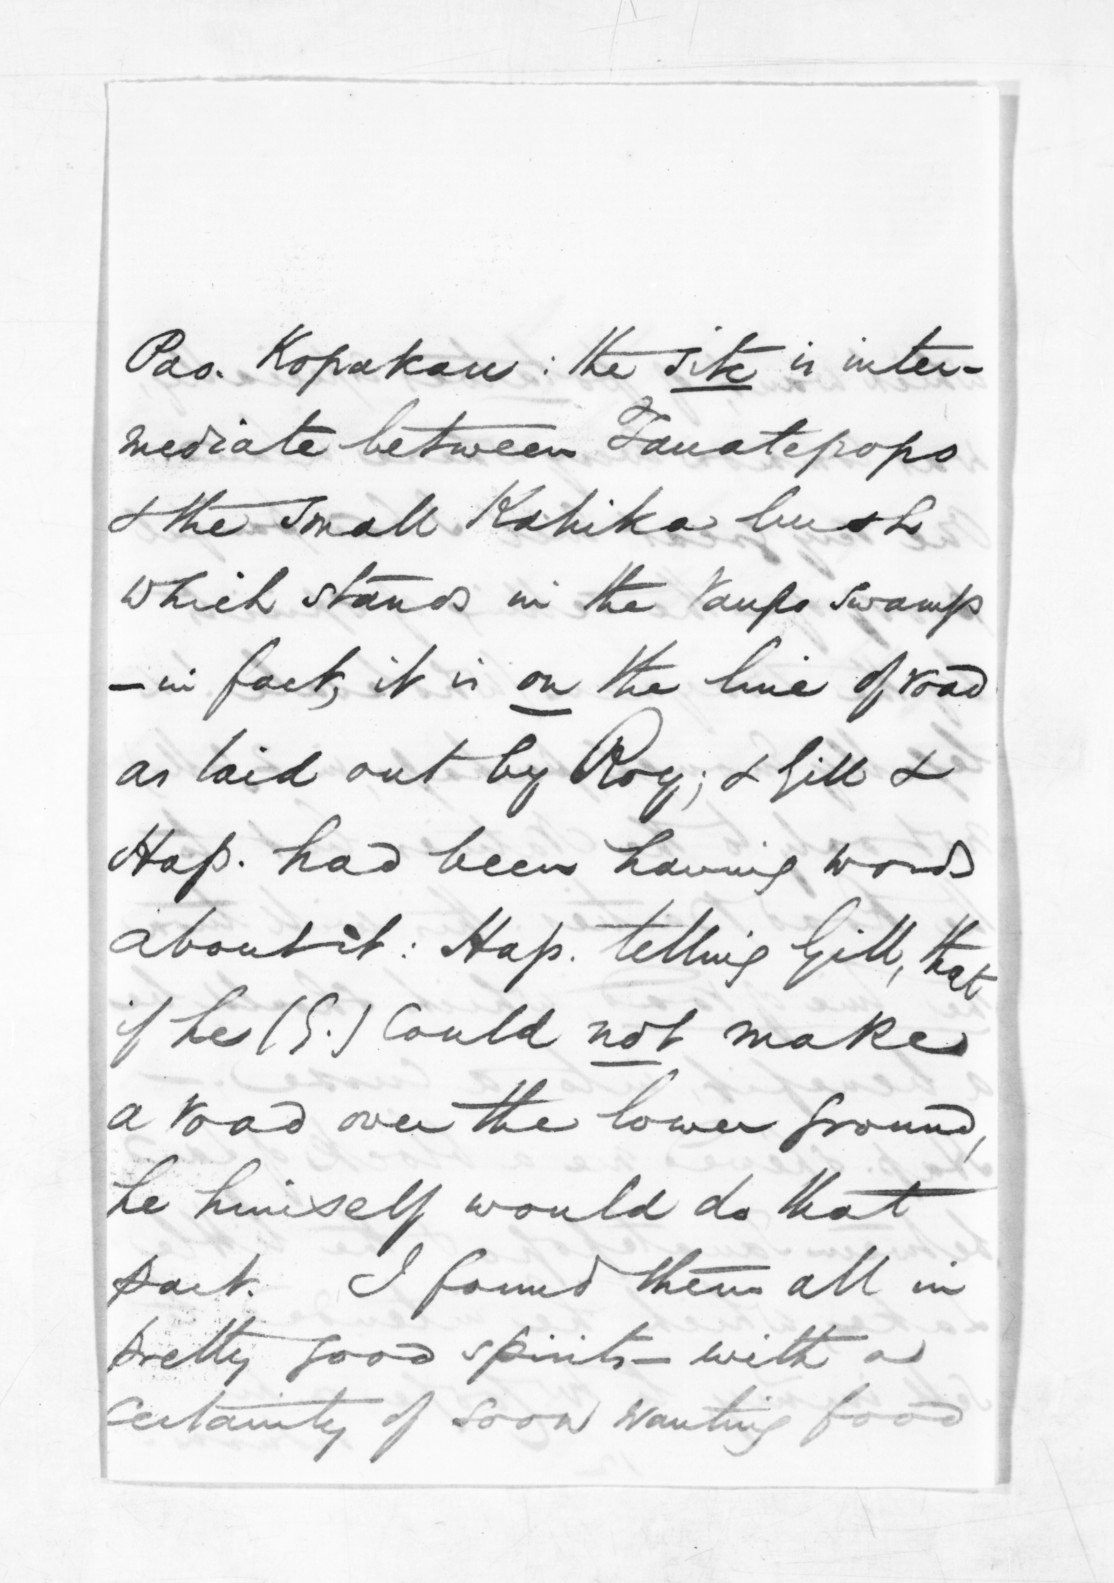 Pao. Kopakau: the site is inter-
mediate between Tauatepopo
& the small Kahika bush
which stands in the raupo swamp
– in fact, it is on the line of road
as laid out by Roy; & Gill &
Hap. had been having words
about it: Hap. telling Gill, that
if he (G.) could not make
a road over the lower ground,
he himself would do that
part. I found them all in
pretty good spirits – with a
certainty of soon wanting food